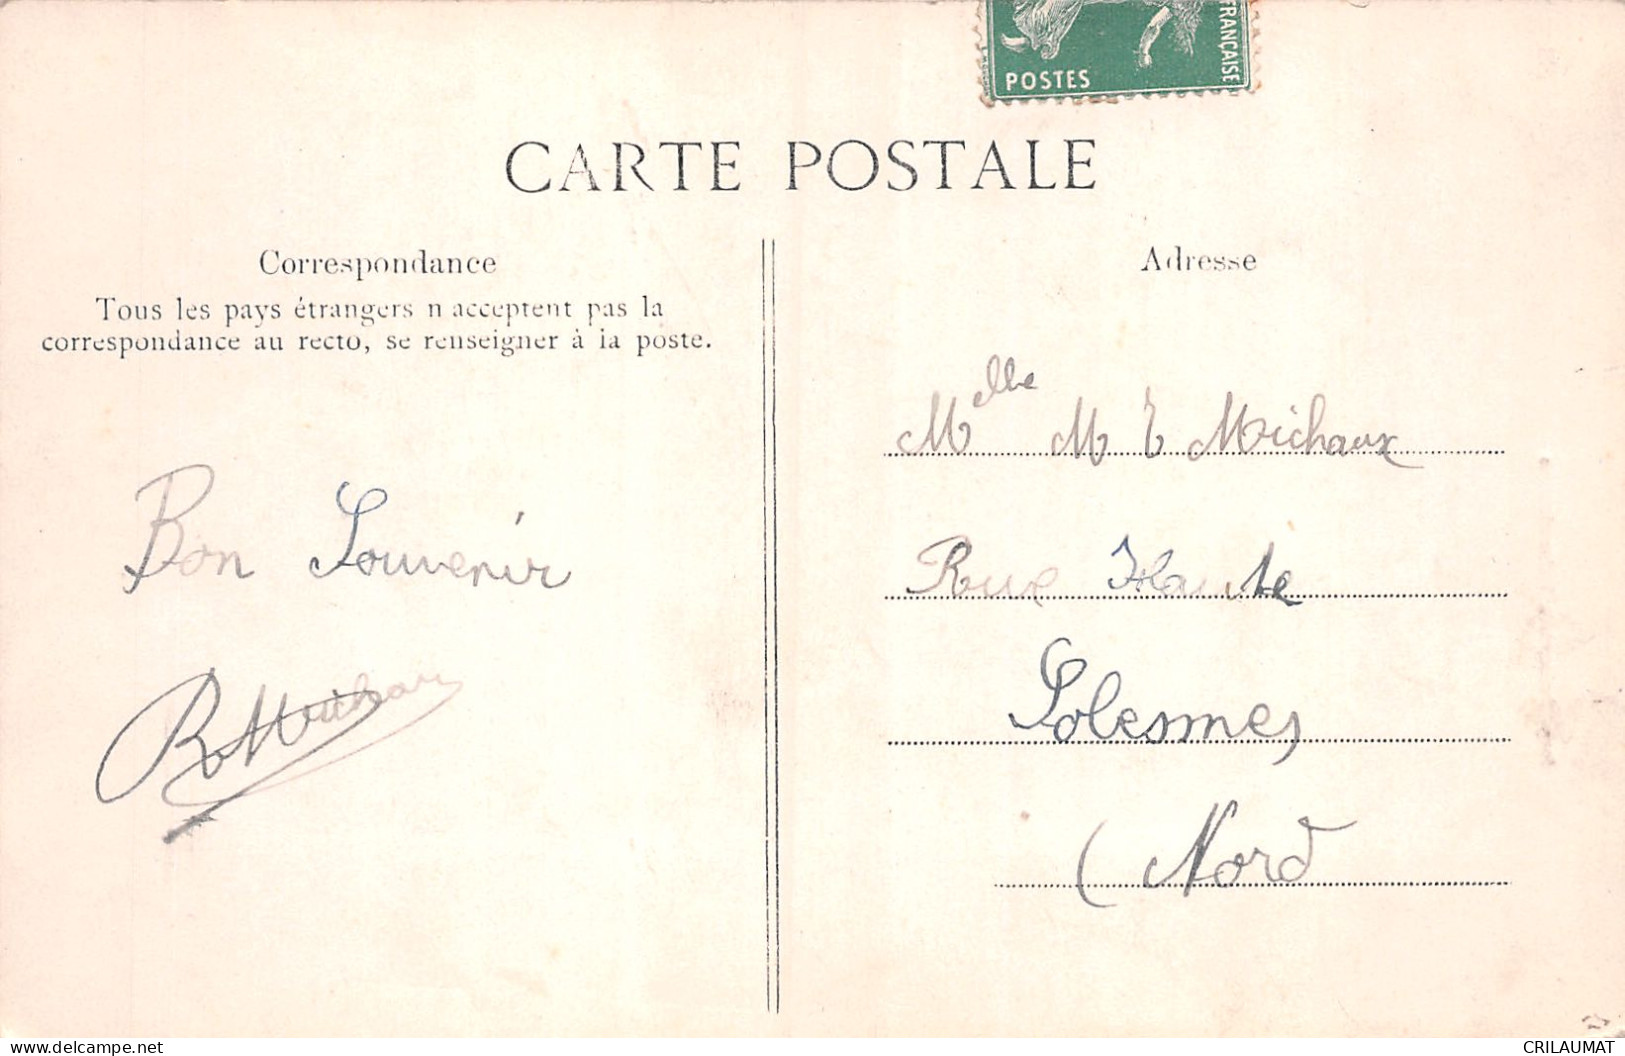 FRANÇAISE
POSTES
CARTE POSTALE
Correspondance
Tous les pays étrangers n acceptent pas la
correspondance au recto, se renseigner à la poste.
Bon Souvenir
R Michau
Adresse
Melle M E Michaux
Rue Haute
Solesmes
(Nord
delcampe.net
CRILAUMAT